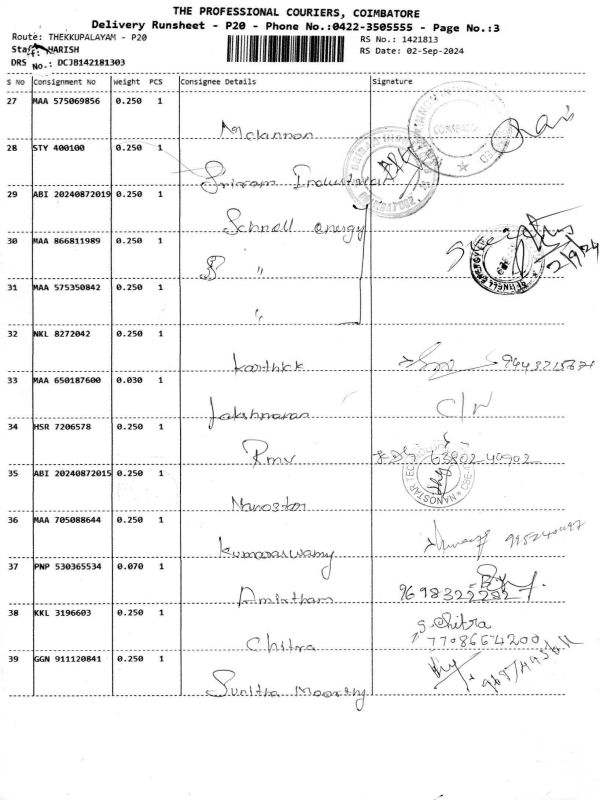 THE PROFESSIONAL COURIERS, COIMBATORE
Delivery Runsheet - P20 - Phone No.:0422-3505555 - Page No.:3
Route: THEKKUPALAYAM - P20
RS No.: 1421813
Staff: HARISH
RS Date: 02-Sep-2024
DRS No.: DCJB142181303
S No Consignment No Weight PCS Consignee Details Signature
27 MAA 575069856 0.250 1
Mckinnon
28 STY 400100 0.250 1
Sriram Industrial
29 ABI 20240872019 0.250 1
Schnell energy
30 MAA 866811989 0.250 1
"
2/9/24
31 MAA 575350842 0.250 1
"
32 NKL 8272042 0.250 1
Karthick
33 MAA 650187600 0.030 1
Lakshmanan C/N
34 HSR 7206578 0.250 1
Rmv 6380240902
35 ABI 20240872015 0.250 1
Nanostar
NANOSTAR TEC
36 MAA 705088644 0.250 1
Kumaraswamy
37 PNP 530365534 0.070 1
Amirtham
38 KKL 3196603 0.250 1
Chitra
S. Chitra
7708664200
39 GGN 911120841 0.250 1
Sunitha Moorthy